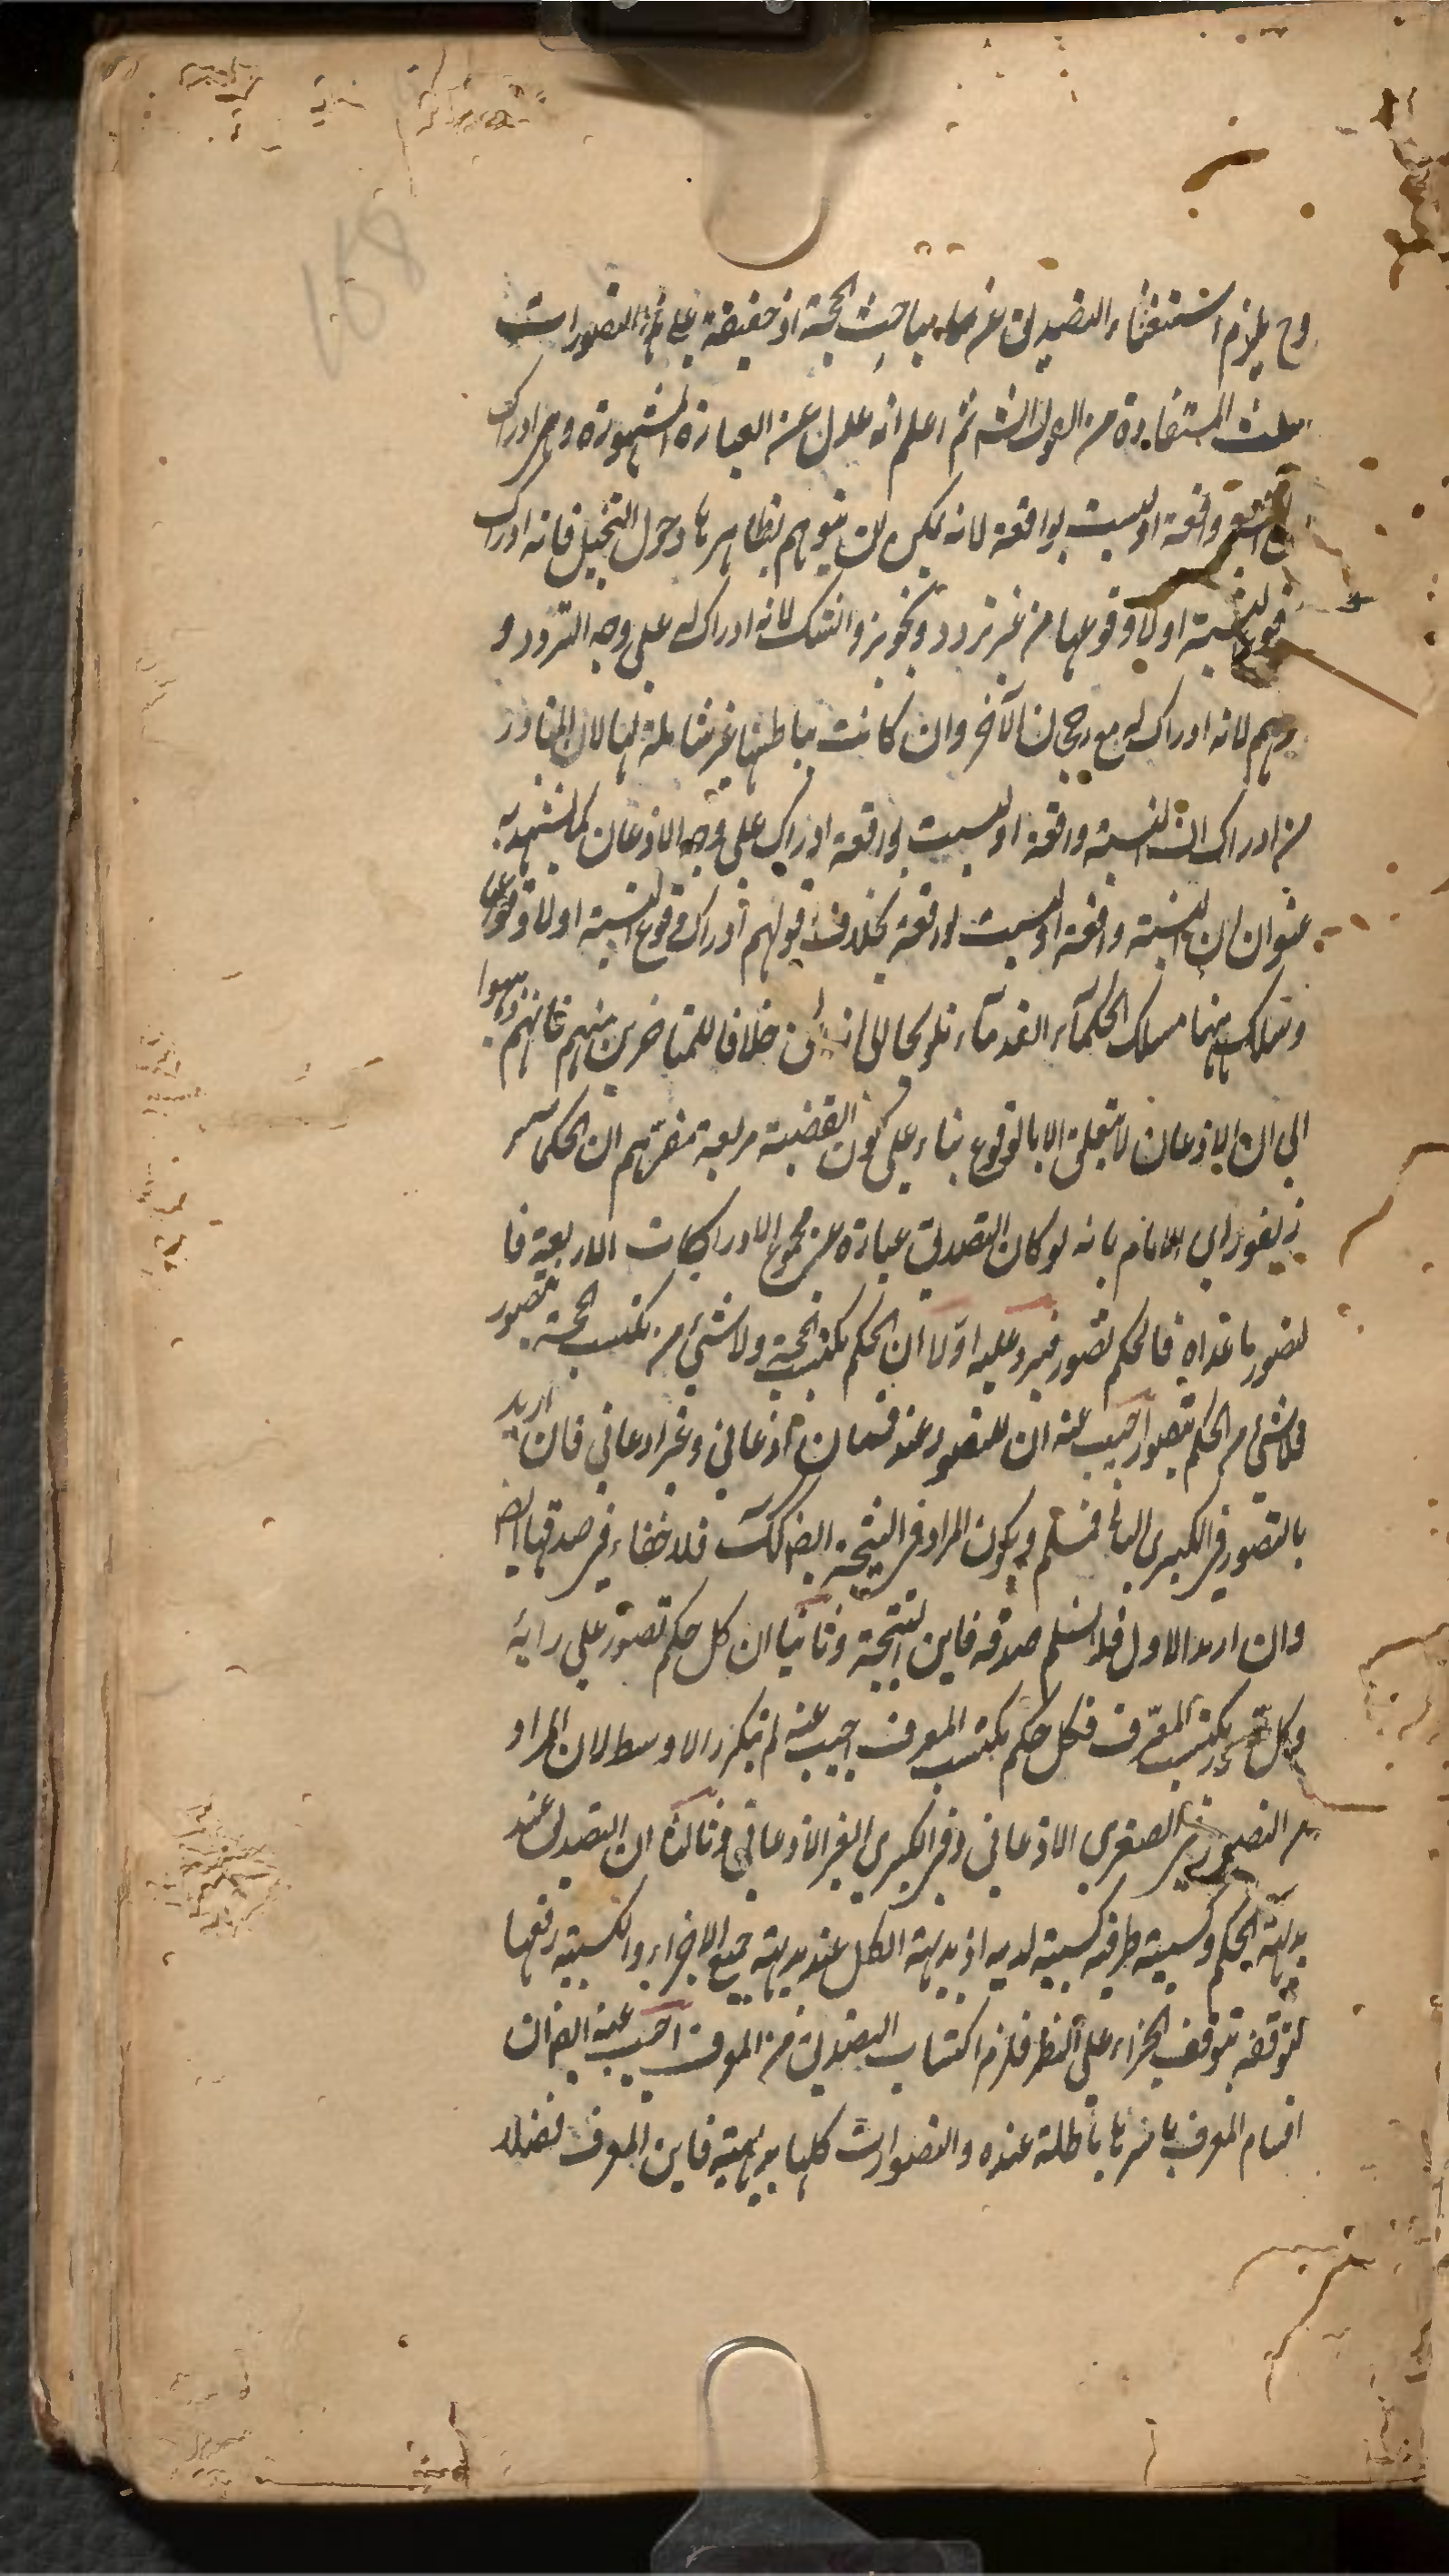 158
وح يلزم استغناء التصديق عن مباحث الحجة اذ حقيقة التصورات
الثلث المستفادة من القول الشه ثم اعلم انه عدل عن العبارة المشهورة وهى ادراك
واقعة او ليست بواقعة لانه يمكن ان يتوهم بظاهرها دخول التخييل فانه ادراك
وقوع النسبة او لا وقوعها من غير تردد وتجويز والشك لانه ادراك له على وجه التردد و
وهم لانه ادراك له مع رجحان الآخر وان كانت بباطنها غير شاملة لها لان المتبادر
من ادراك ان النسبة واقعة او ليست بواقعة ادراك على وجه الاذعان كما يشهد به
عنوان ان النسبة واقعة او ليست بواقعة بخلاف قولهم ادراك وقوع النسبة او لا وقوعها
وسلك ههنا مسلك الحكماء القدماء خلافا للمتاخرين منهم فانهم ذهبوا
الى ان الاذعان لا يتعلق الا بالوقوع بناء على كون القضية مربعة ان الحكماء
زيفوا راى الامام بانه لو كان التصديق عبارة عن مجموع الادراكات الاربعة فا
لتصور ما عداه فالحكم تصور فيرد عليه اولا ان الحكم يكتسب بالحجة ولا شئ من يكتسب بالحجة تصور
فلا شئ من الحكم بتصور اجيب عنه ان للتصور عنده قسمان اذعانى وغير اذعانى فان اريد
بالتصور فى الكبرى الثانى فمسلم ويكون المراد فى النتيجة ايضا كك فلا خفاء فى صدقها ايضا
وان اريد الاول فلا نسلم صدقه فاين النتيجة وثانيا ان كل حكم تصور على رايه
وكل تصور يكتسب بالمعرف فكل حكم يكتسب بالمعرف اجيب عنه لم يتكرر الاوسط لان المراد
من التصور فى الصغرى الاذعانى وفى الكبرى الغير الاذعانى وثالثا ان التصديق عند
بداهة الحكم وكسبية طرفيه كسبية لديه اذ بديهة الكل عند بديهة جميع الاجزاء والكسبية رفعها
لتوقفه بتوقف الجزء على النظر فلزم اكتساب التصديق من المعرف اجيب عنه ايضا ان
اقسام المعرف باسرها باطلة عنده والتصورات كلها بديهية فاين المعرف فضلا